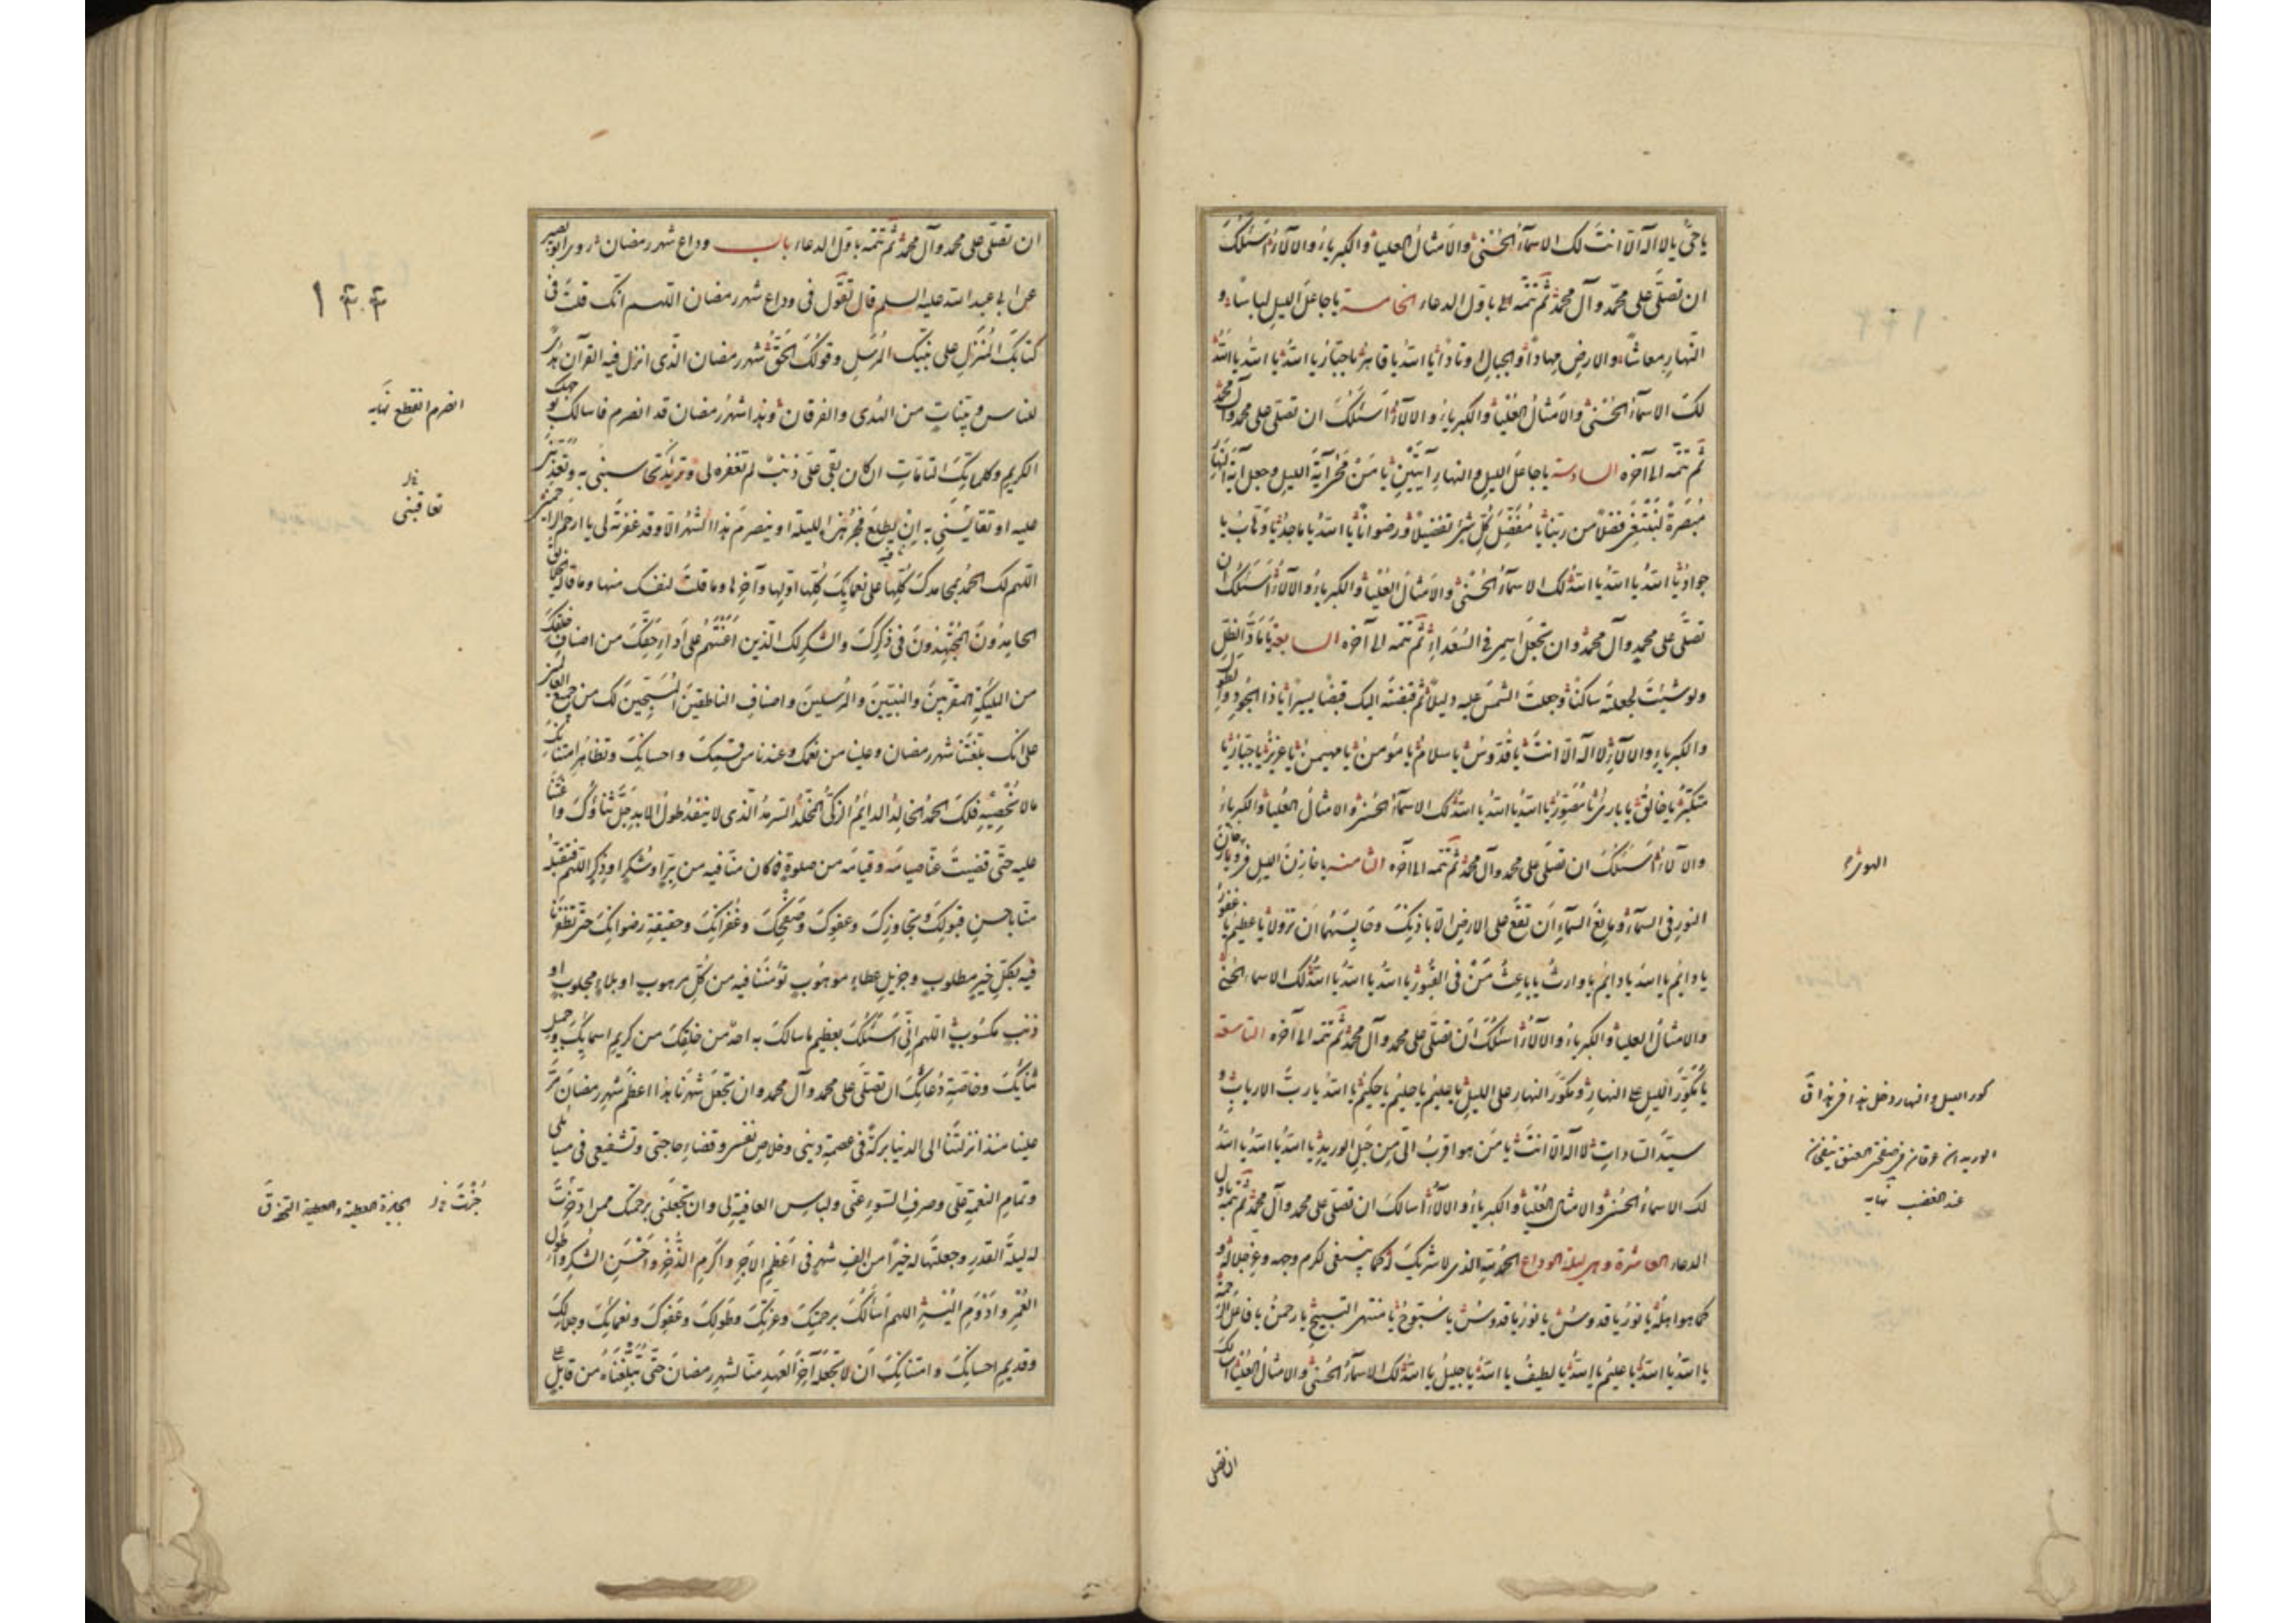 يا حيّ يا لا اله الّا انت لك الاسمآء الحسنى والامثال العليا والكبرياء والالآء اسئلك
ان تصلّى على محمّد وآل محمد ثم تتمّه الى باوّل الدعاء الخامسة يا جاعل الليل لباسًا و
النهار معاشًا والارض مهادًا والجبال اوتادًا يا الله يا قاهر يا جبّار يا الله يا الله يا الله
لك الاسمآء الحسنى والامثال العليا والكبرياء والالآء اسئلك ان تصلى على محمد وآل محمد
ثم تتمه الى آخره السادسة يا جاعل الليل والنهار آيتين يا من محى آية الليل وجعل آية النهار
مبصرةً لنبتغى فضلًا من ربّنا يا مفصّل كل شئ تفصيلًا ورضوانًا يا الله يا ماجد يا وهّاب يا
جواد يا الله يا الله يا الله لك الاسمآء الحسنى والامثال العليا والكبرياء والالآء اسئلك ان
تصلّى على محمد وآل محمد وان تجعل اسمى فى السعداء ثم تتمه الى آخره السابعة يا مادّ الظلّ
ولو شئت لجعلته ساكنًا وجعلت الشمس عليه دليلًا ثم قبضته اليك قبضًا يسيرًا يا ذا الجود والطول
والكبرياء والالآء لا اله الّا انت يا قدّوس يا سلام يا مؤمن يا مهيمن يا عزيز يا جبّار يا
متكبّر يا خالق يا بارئ يا مصوّر يا الله يا الله يا الله لك الاسمآء الحسنى والامثال العليا والكبرياء
والآلاء اسئلك ان تصلّى على محمد وآل محمد ثم تتمه الى آخره الثامنة يا خازن الليل فى الهواء وخازن
النور فى السمآء ومانع السمآء ان تقع على الارض الّا باذنك وحابسهما ان تزولا يا عظيم يا غفور
يا دائم يا الله يا دايم يا وارث يا باعث من فى القبور يا الله يا الله يا الله لك الاسماء الحسنى
والامثال العليا والكبرياء والالآء اسئلك ان تصلّى على محمد وآل محمد ثم تتمه الى آخره التاسعة
يا مكوّر الليل على النهار ومكوّر النهار على الليل يا عليم يا حليم يا حكيم يا الله يا ربّ الارباب و
سيّد السادات لا اله الّا انت يا من هو اقرب الىّ من حبل الوريد يا الله يا الله يا الله
لك الاسماء الحسنى والامثال العليا والكبرياء والالآء اسالك ان تصلى على محمد وآل محمد ثم تتمه باول
الدعاء العاشرة وهى ليلة الوداع الحمد لله الذى لا شريك له كما ينبغى لكرم وجهه وعزّ جلاله و
كما هو اهله يا نور يا قدّوس يا نور يا قدوس يا سبّوح يا منتهى التسبيح يا رحمن يا فاعل الرحمة
يا الله يا الله يا عليم يا الله يا لطيف يا الله يا جليل يا الله لك الاسمآء الحسنى والامثال العليا اسالك
ان تصلى
الهواء
كور الليل والنهار دخل هذا فى هذا ق
الوريدان عرقان فى صفحتى العنق ينتفخان
عند الغضب نهايه
ان تصلّى على محمد وآل محمد ثم تتمه باول الدعاء باب وداع شهر رمضان روى ابو بصير
عن ابى عبد الله عليه السلم قال تقول فى وداع شهر رمضان اللهم انك قلت فى
كتابك المنزل على نبيك المرسل وقولك الحق شهر رمضان الذى انزل فيه القرآن هدًى
للناس وبيّنات من الهدى والفرقان وهذا شهر رمضان قد انصرم فاسالك بوجهك
الكريم وكلماتك التامّات ان كان بقى علىّ ذنب لم تغفره لى وتريد تحاسبنى به وتعذبنى
عليه او تقايسنى به ان يطلع فجر هذه الليلة او ينصرم هذا الشهر الا وقد غفرته لى يا ارحم الراحمين
اللهم لك الحمد بمحامدك كلّها على نعمائك كلّها اوّلها وآخرها وما قلت لنفسك منها وما قاله الخلائق
الحامدون المجتهدون فى ذكرك والشكر لك الذين اعنتهم على اداء حقّك من اصناف خلقك
من الملئكة المقرّبين والنبيّين والمرسلين واصناف الناطقين المسبّحين لك من جميع العالمين
على انك بلّغتنا شهر رمضان وعلينا من نعمك وعندنا من قسمك واحسانك وتظاهر امتنانك
ما لا نحصيه فلك الحمد الخالد الدايم الزكىّ المخلّد السرمد الذى لا ينفد طول الابد جلّ ثناؤك واعنتنا
عليه حتّى قضيت عنّا صيامه وقيامه من صلوة فما كان منّا فيه من برّ او شكر او ذكر اللهم فتقبّله
منّا باحسن قبولك وتجاوزك وعفوك وصفحك وغفرانك وحقيقة رضوانك حتى تظفرنا
فيه بكلّ خير مطلوب وجزيل عطاء موهوب تؤمننا فيه من كلّ مرهوب او بلاء مجلوب او
ذنب مكسوب اللهم انّى اسئلك بعظيم ما سالك به احد من خلقك من كريم اسمائك وجميل
ثنائك وخاصّة دعائك ان تصلّى على محمد وآل محمد وان تجعل شهرنا هذا اعظم شهر رمضان مرّ
علينا منذ انزلتنا الى الدنيا بركة فى عصمة دينى وخلاص نفسى وقضاء حاجتى وتشفيعى فى مسائلى
وتمام النعمة علىّ وصرف السوء عنّى ولباس العافية لى وان تجعلنى برحمتك ممن ادّخرت
له ليلة القدر وجعلتها له خيرًا من الف شهر فى اعظم الاجر واكرم الذّخر واحسن الشكر واطول
العمر وادوم اليسر اللهم اسألك برحمتك وعزّتك وطولك وعفوك ونعمائك وجلالك
وقديم احسانك وامتنانك ان لا تجعله آخر العهد منّا لشهر رمضان حتّى تبلّغناه من قابل
انصرم انقطع نهايه
تعاقبنى
الجائزة العطية والعطية التحفة ق